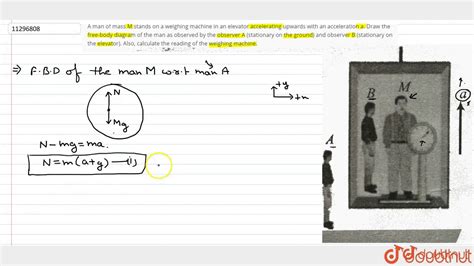 11296808
A man of mass M stands on a weighing machine in an elevator accelerating upwards with an acceleration a. Draw the
free body diagram of the man as observed by the observer A (stationary on the ground) and observer B (stationary on
the elevator). Also, calculate the reading of the weighing machine.
⇒ F.B.D of the man M w.r.t man A
N
Mg
+y
+x
N - mg = ma.
N = m(a+g) —(1)
B
M
a
A
doubtnut